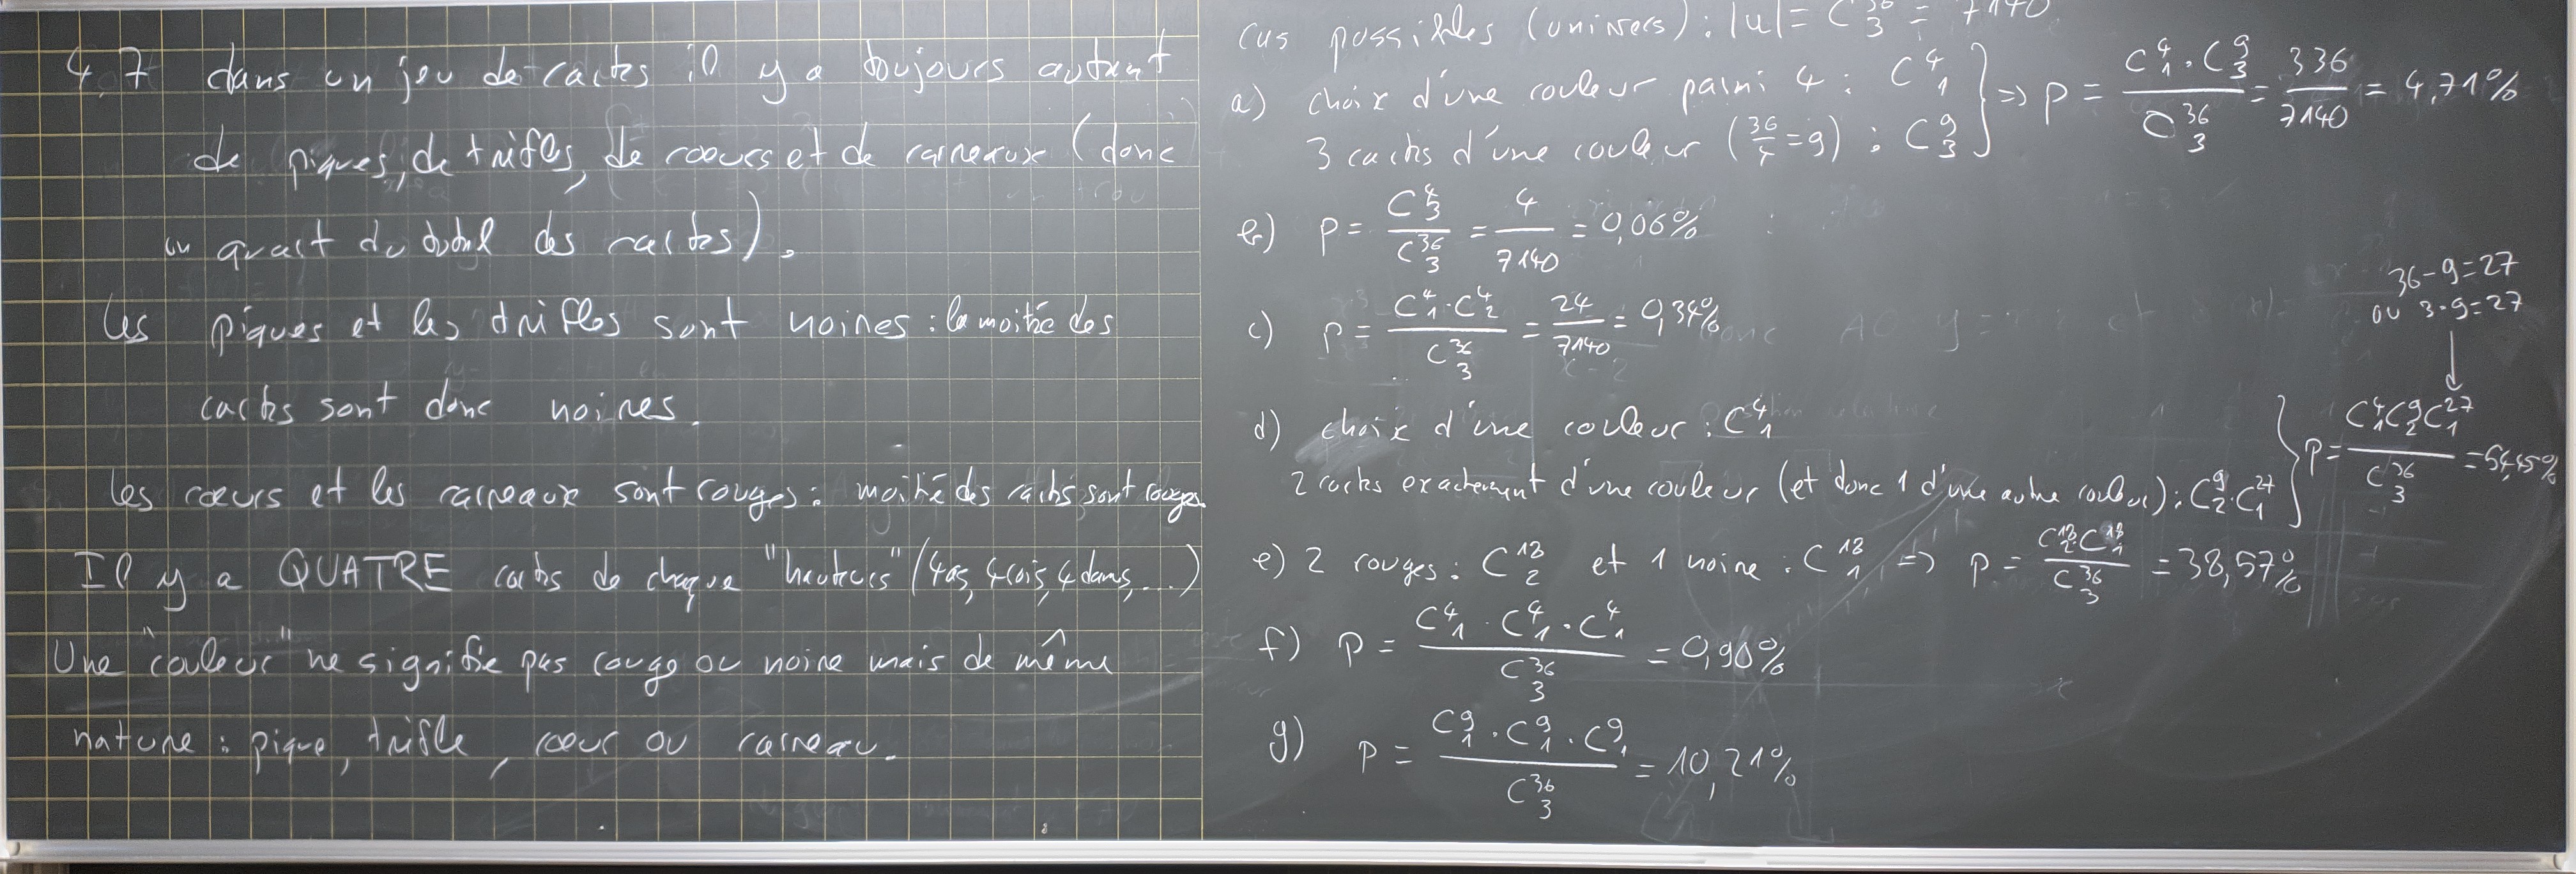 4.7 dans un jeu de cartes il y a toujours autant
de piques, de trèfles, de coeurs et de carreaux (donc
un quart du total des cartes).
Les piques et les trèfles sont noires : la moitié des
cartes sont donc noires.
Les cœurs et les carreaux sont rouges : moitié des cartes sont rouges
Il y a QUATRE cartes de chaque "hauteurs" (4 as, 4 rois, 4 dames, ...)
Une "couleur" ne signifie pas rouge ou noire mais de même
nature : pique, trèfle, cœur ou carreau.
cas possibles (univers) : |U| = C^36_3 = 7140
a) choix d'une couleur parmi 4 : C^4_1
3 cartes d'une couleur (36/4 = 9) : C^9_3 } => P = (C^4_1 · C^9_3)/C^36_3 = 336/7140 = 4,71%
b) P = C^4_3/C^36_3 = 4/7140 = 0,06%
c) P = (C^4_1 · C^4_2)/C^36_3 = 24/7140 = 0,34%
36-9=27
ou 3·9=27
d) choix d'une couleur : C^4_1
2 cartes exactement d'une couleur (et donc 1 d'une autre couleur) : C^9_2 · C^27_1 } P = (C^4_1 C^9_2 C^27_1)/C^36_3 = 54,45%
e) 2 rouges : C^18_2 et 1 noire : C^18_1 => P = (C^18_2 C^18_1)/C^36_3 = 38,57%
f) P = (C^4_1 · C^4_1 · C^4_1)/C^36_3 = 0,90%
g) P = (C^9_1 · C^9_1 · C^9_1)/C^36_3 = 10,21%